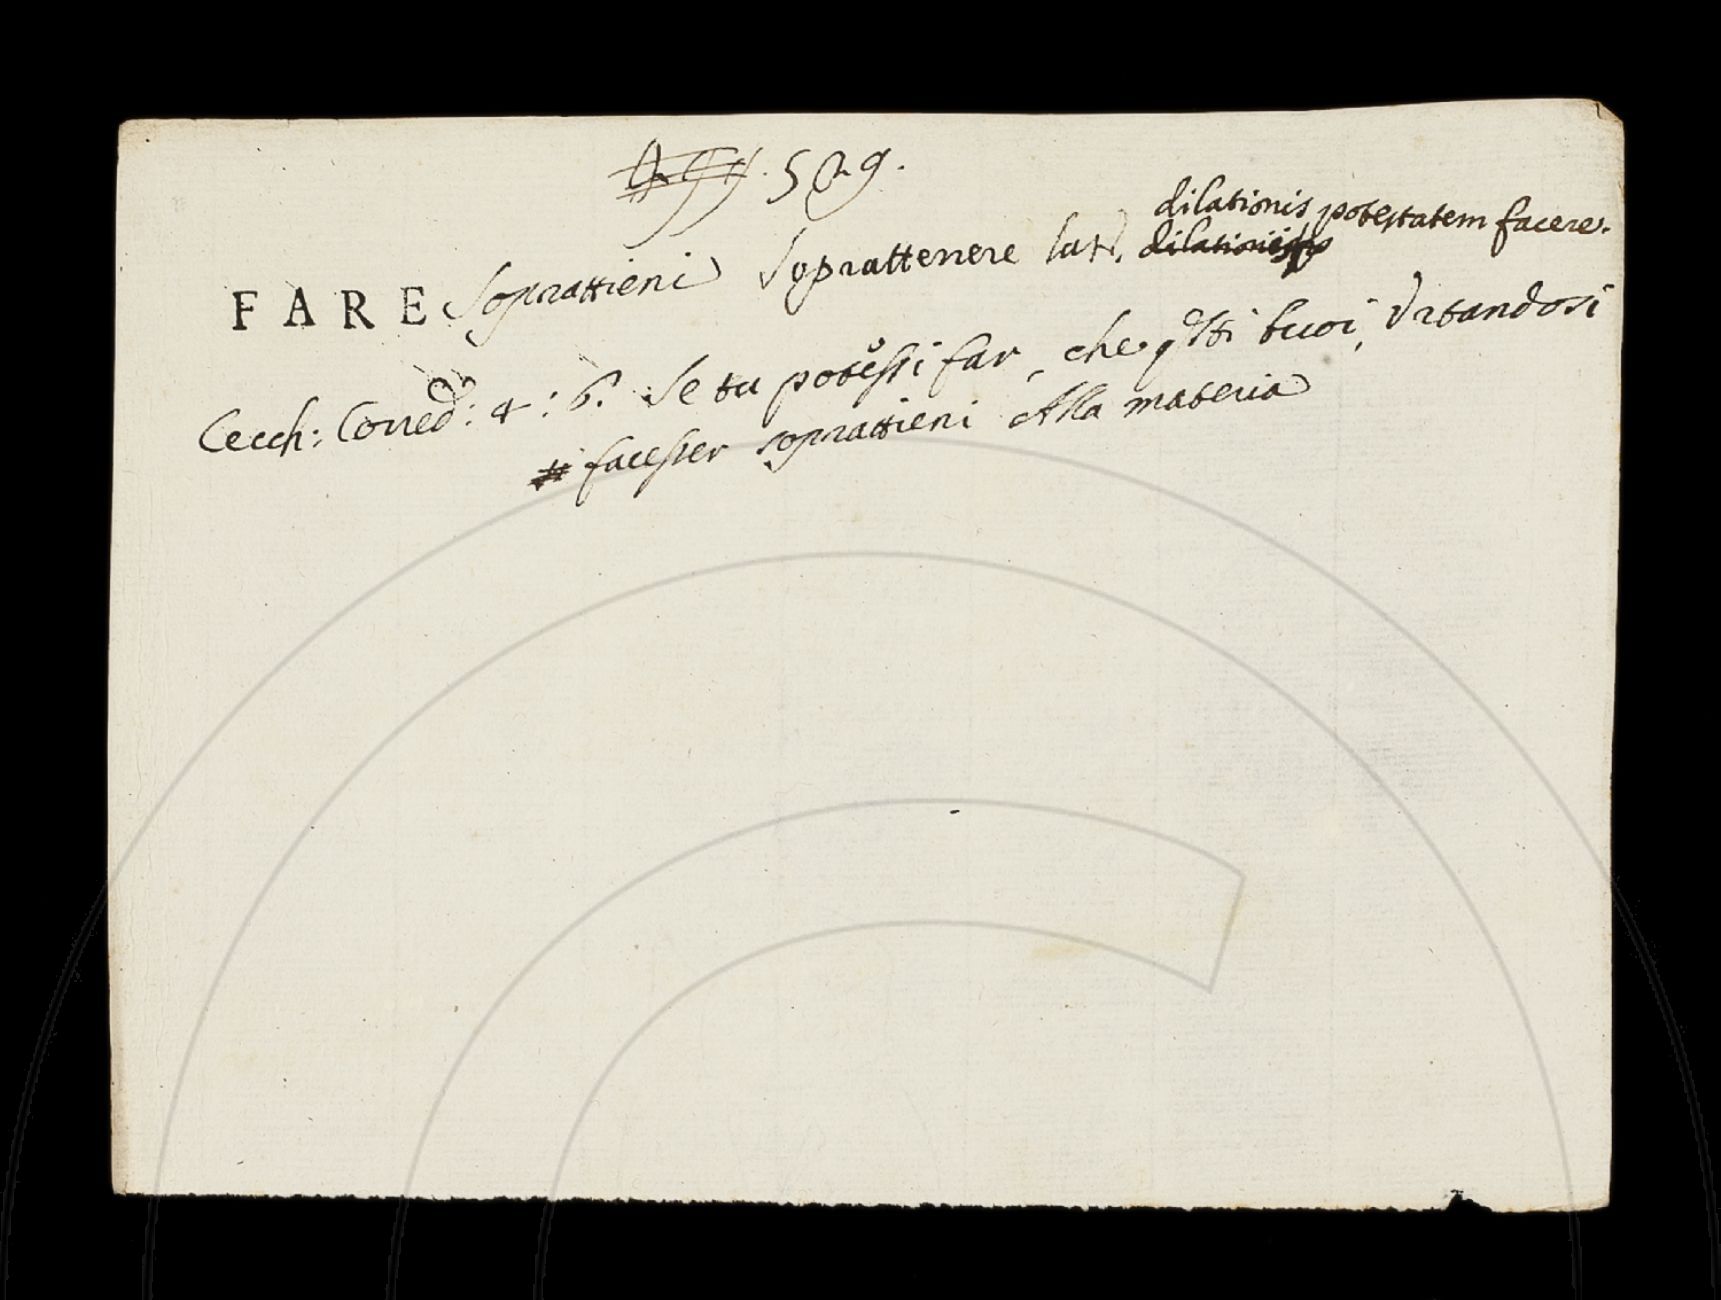 529.
dilationis potestatem facere.
FARE soprattieni Soprattenere lat. dilationis
Cecch: Corred: 4: 6. Se tu potessi far, che qsti buoi, Urtandosi
facesser soprattieni Alla materia